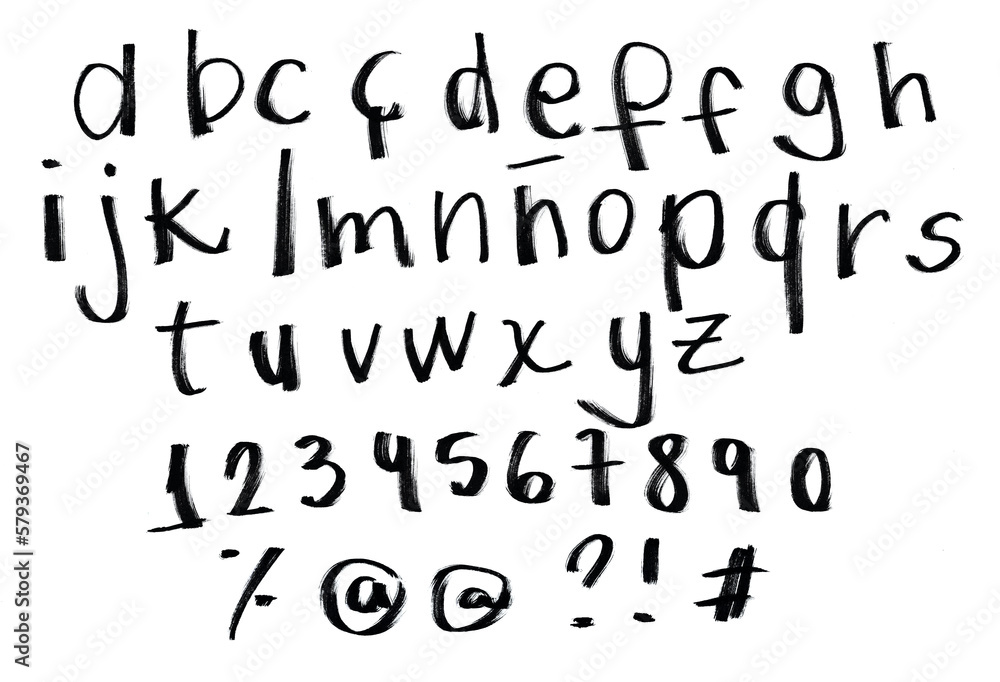 a b c ç d e f f g h
i j k l m n ñ o p q r s
t u v w x y z
1 2 3 4 5 6 7 8 9 0
% @ @ ? ! #
Adobe Stock | #579369467